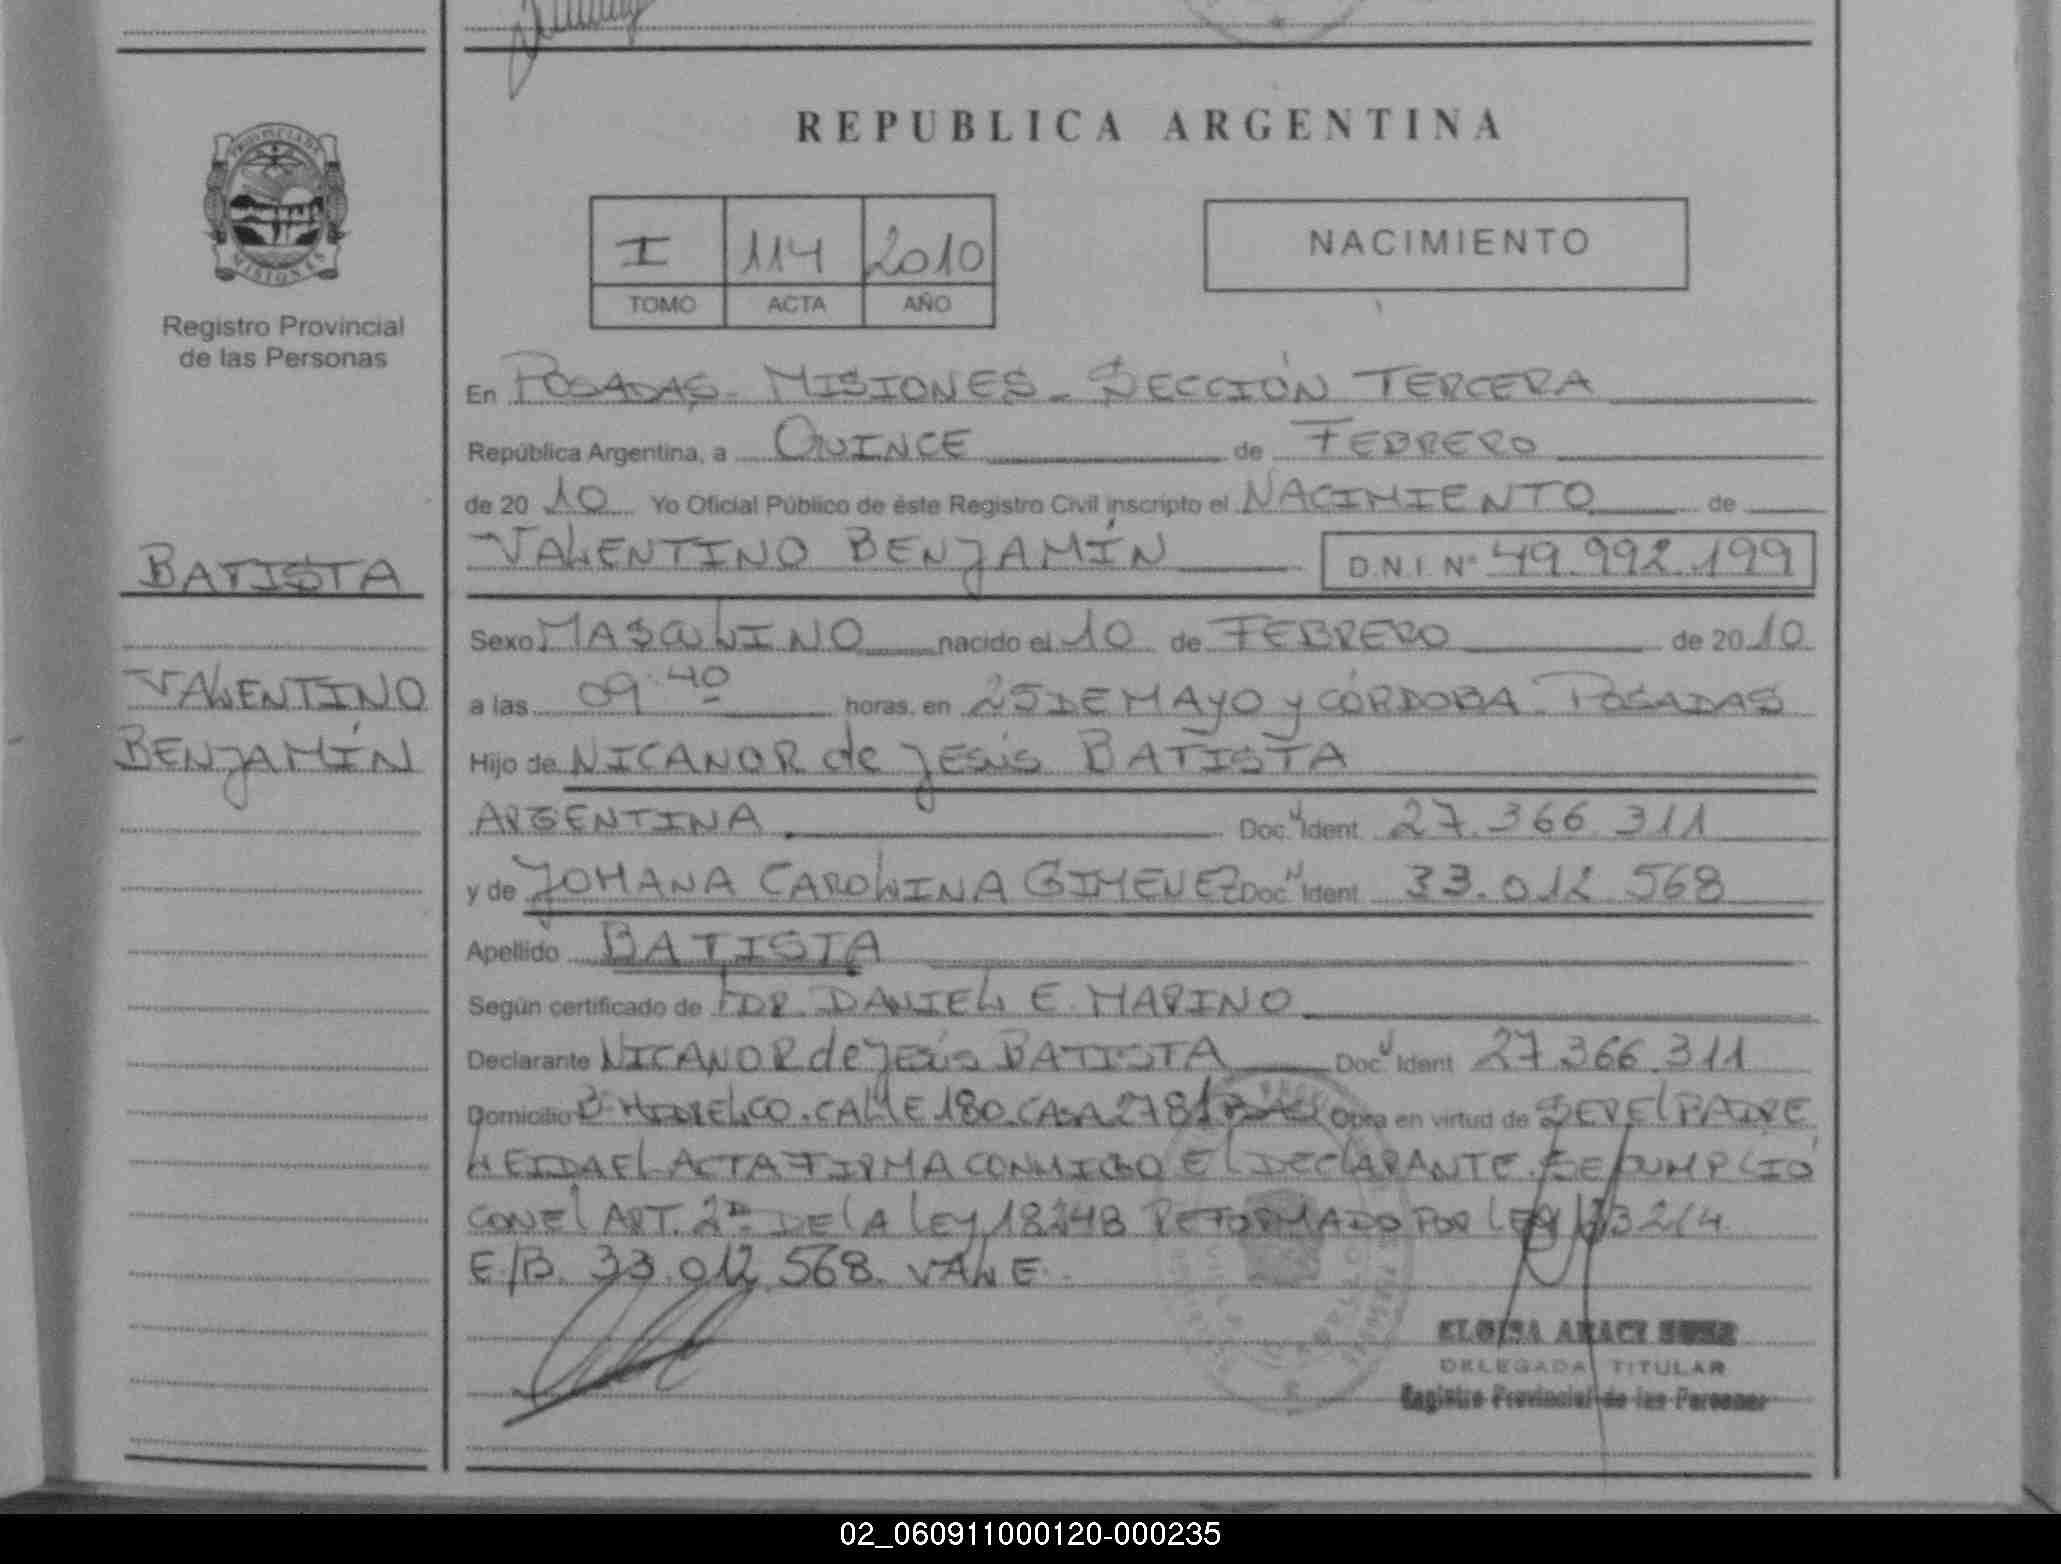 REPUBLICA ARGENTINA
PROVINCIA DE
MISIONES
Registro Provincial
de las Personas
I 114 2010
TOMO ACTA AÑO
NACIMIENTO
En POSADAS - MISIONES - SECCIÓN TERCERA
República Argentina, a QUINCE de FEBRERO
de 20 10 Yo Oficial Público de éste Registro Civil inscripto el NACIMIENTO de
VALENTINO BENJAMÍN D.N.I. Nº 49.992.199
BATISTA
VALENTINO
BENJAMÍN
Sexo MASCULINO nacido el 10 de FEBRERO de 20 10
a las 09:40 horas, en 25 DE MAYO y CÓRDOBA - POSADAS
Hijo de NICANOR de JESÚS BATISTA
ARGENTINA Doc. Ident. 27.366.311
y de JOHANA CAROLINA GIMENEZ Doc. Ident. 33.012.568
Apellido BATISTA
Según certificado de DR. DANIEL E. MARINO
Declarante NICANOR de JESÚS BATISTA Doc. Ident 27.366.311
Domicilio CALLE 180. CASA 2781 Obra en virtud de SER El PADRE
LEIDA El ACTA FIRMA CONMIGO El DEClARANTE. SE CUMPLIÓ
CON El ART. 2º DE lA lEY 18248 REFORMADO POR LEY
E/B. 33.012.568. VALE.
DELEGADA TITULAR
Registro Provincial de las Personas
02_060911000120-000235